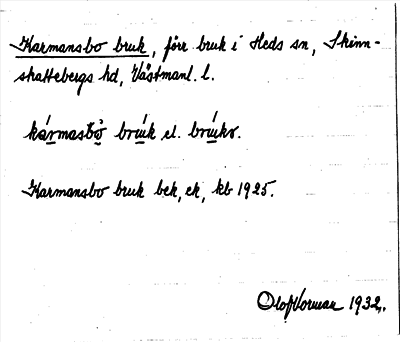 Karmansbo bruk, förr bruk i Heds sn, Skinn-
skattebergs hd, Västmanl. l.
kármasbo͐ brúk el. brúks.
Karmansbo bruk bek, ek, kb 1925.
Olof Vorman 1932.